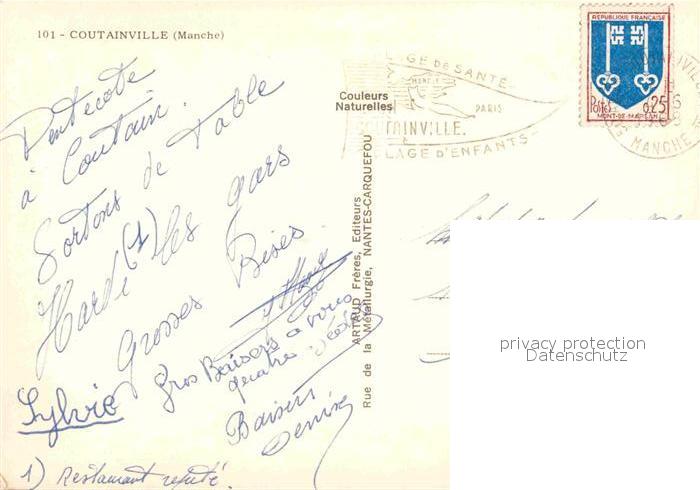 101 - COUTAINVILLE (Manche)
Pentecote
à Coutain.
Sortons de table
Hardi (1) les gars
Grosses Bises.
Gros Baisers à vous
quatre
Sylvie
Baisers
Denise
1) Restaurant réputé.
Couleurs
Naturelles
ARTAUD Frères, Editeurs
Rue de la Métallurgie, NANTES-CARQUEFOU
PLAGE DE SANTÉ
PARIS
COUTAINVILLE.
PLAGE D'ENFANTS
REPUBLIQUE FRANÇAISE
Postes 0,25
MONT-DE-MARSAN
MANCHE
privacy protection
Datenschutz